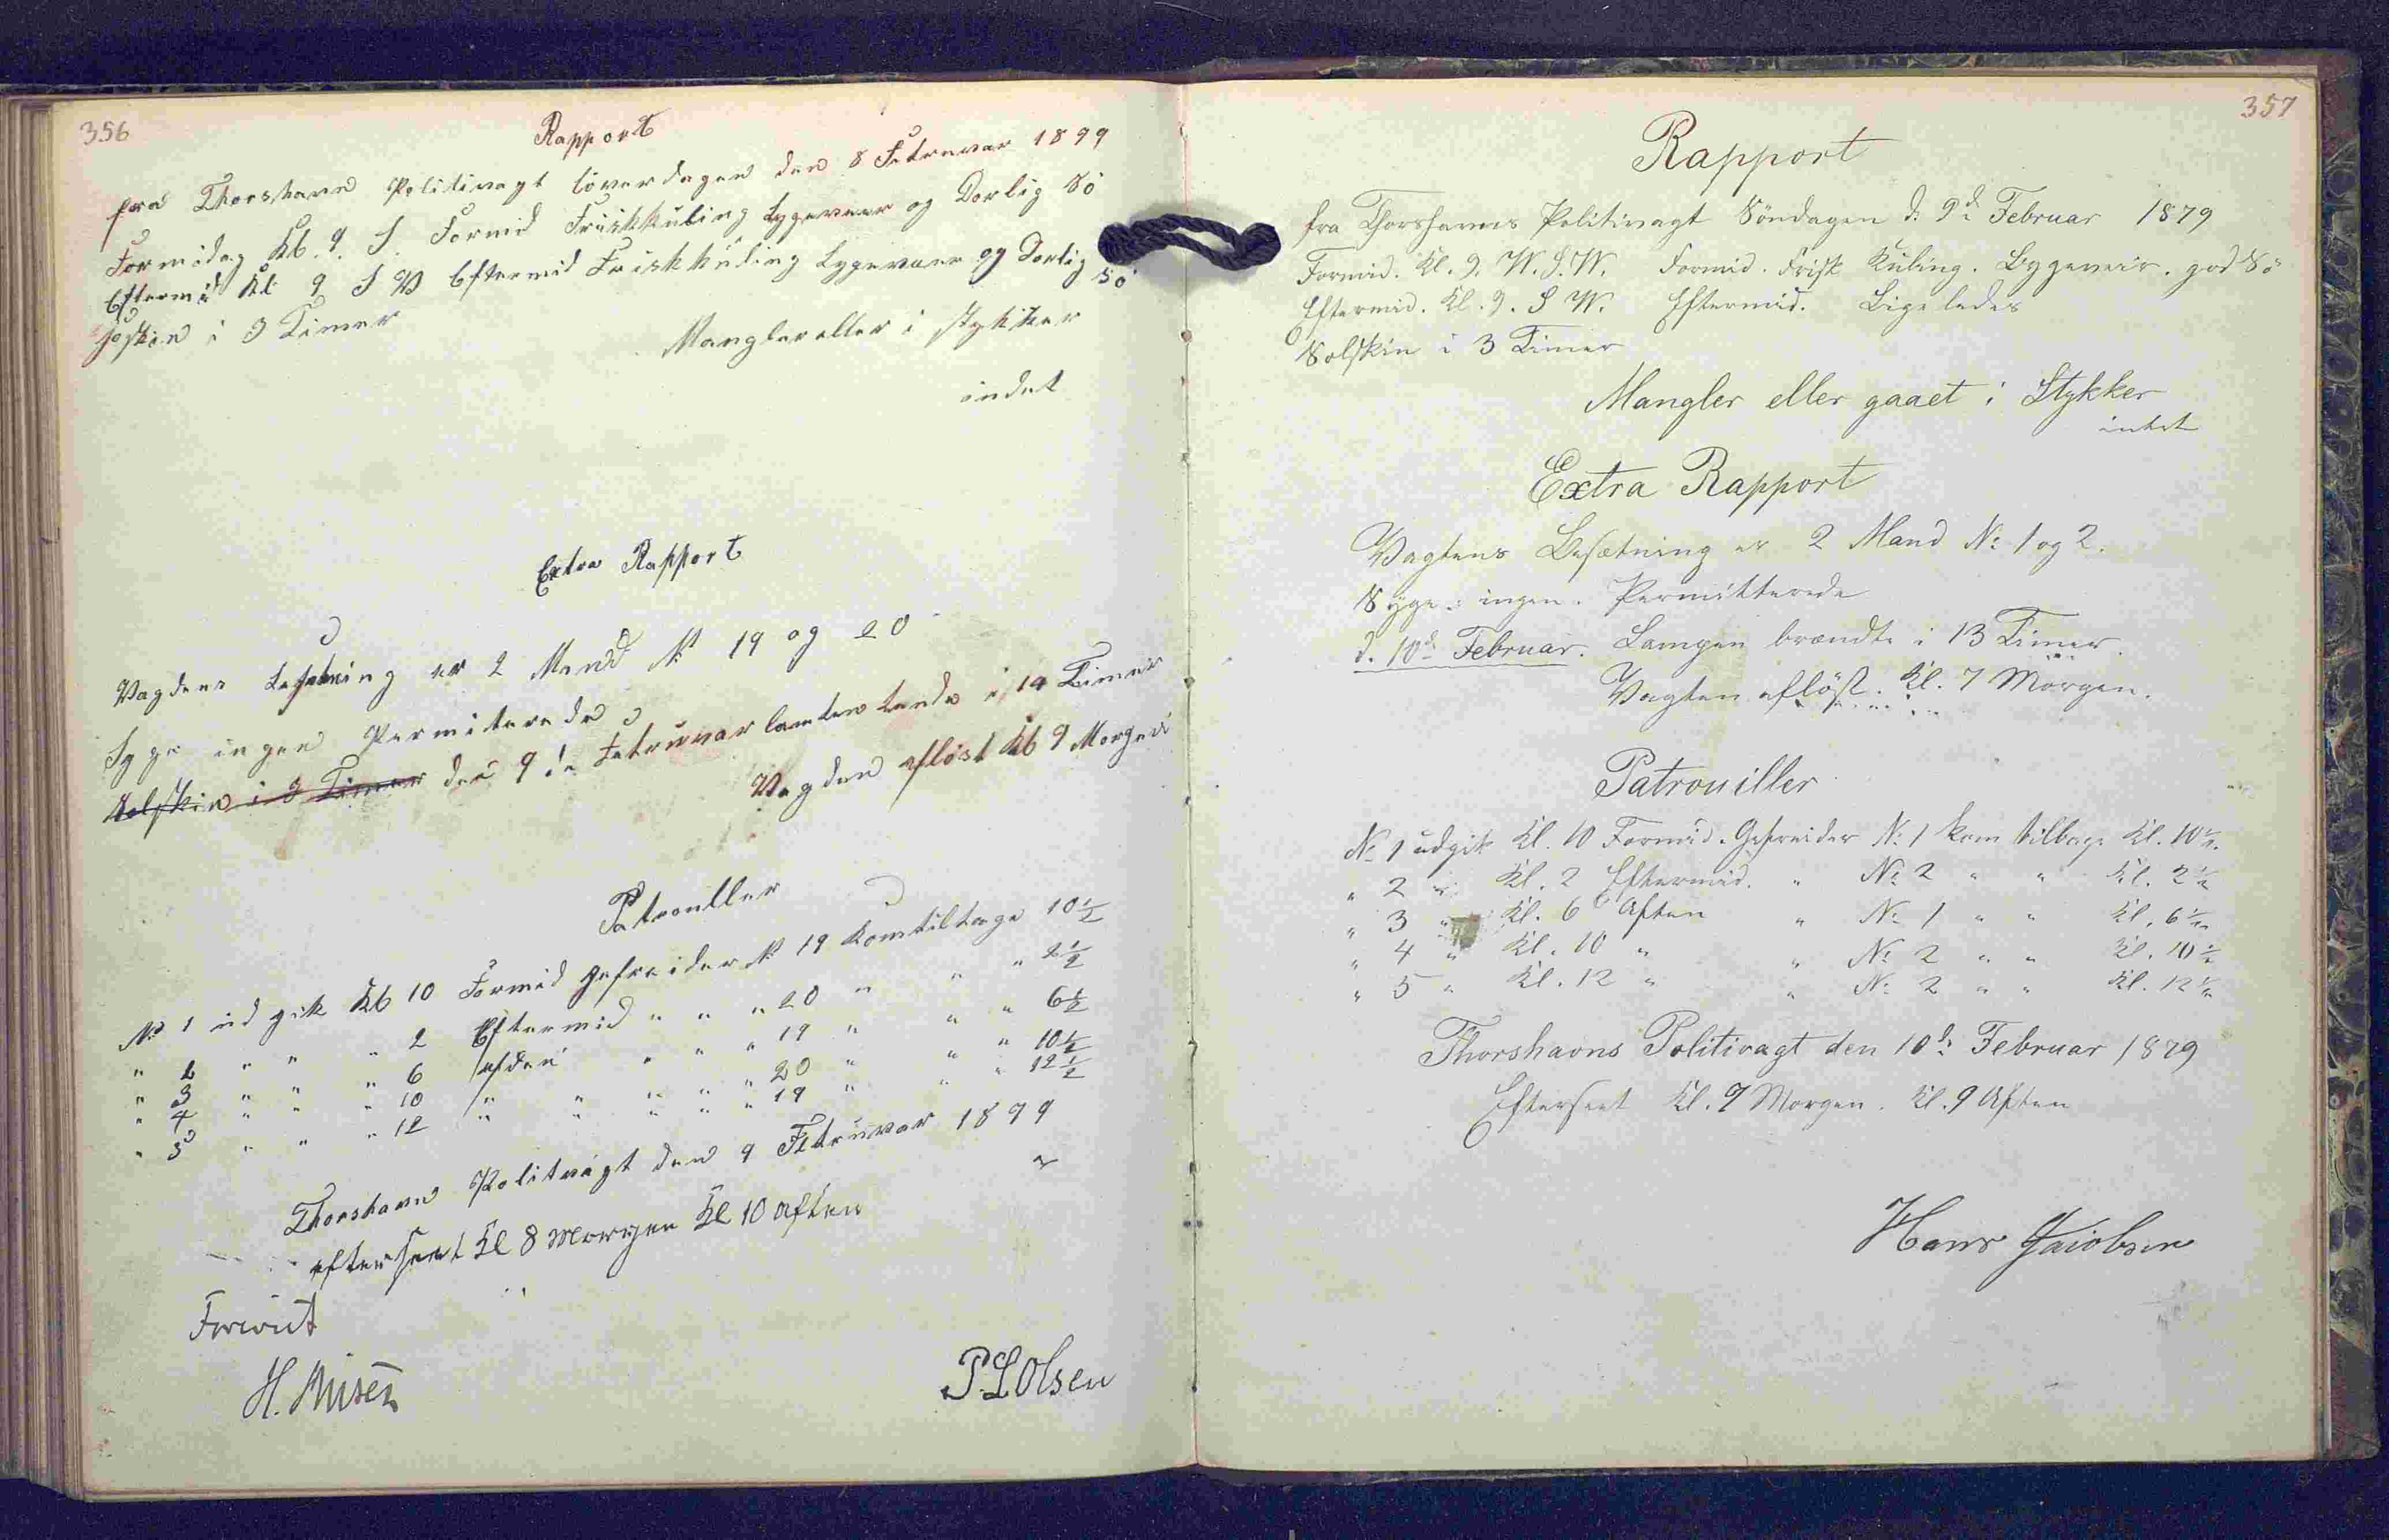 356
Rapport
fra Thorshavns Politivagt löverdagen den 8 Februar 1879
Formidag Kl. 9 S. Formid Friskkuling bygeveer og Dorlig Sö
Eftermid Kl 9 S W Eftermid Friskkuling bygeveer og Dorlig Sö
i 3 Timer
Mangler eller i stykker
indet
Extra Rapport
Vagdens besetning er 2 Mand No 19 og 20
Syge ingen Permiterede
Solskin i 3 Timer den 9de Februar lamten tende i 14 Timer
Vagden aflöst Kl 9 Morgen
Patrouller
No 1 ud gik Kl 10 Formid gefreider No 19 kom tilbage 10 1/2
" 2 " " " 2 Eftermid " " " 20 " " " 2 1/2
" 3 " " " 6 afden " " " 19 " " " 6 1/2
" 4 " " " 10 " " " " " 20 " " " 10 1/2
" 5 " " " 12 " " " " " 19 " " " 12 1/2
Thorshavn Politvagt den 9 Februar 1879
efterseet Kl 8 Morgen Kl 10 aften
Forevist
H.
P. L Olsen
357
Rapport
fra Thorshavns Politivagt Söndagen d. 9d Februar 1879
Formid. Kl. 9. W.S.W. Formid. Frisk Kuling. Bygeveir. god Sö
Eftermid. Kl. 9. S W. Eftermid. Ligeledes
Solskin i 3 Timer
Mangler eller gaaet i Stykker
intet
Extra Rapport
Vagtens Besætning er 2 Mand No 1 og 2.
Syge: ingen. Permitterede
d. 10d Februar. Lampen brændte i 13 Timer.
Vagten aflöst. Kl. 7 Morgen.
Patrouiller
No 1 udgik Kl. 10 Formid. Gefreider No 1 kom tilbage Kl. 10 1/2.
" 2 " Kl. 2 Eftermid. " No 2 " " Kl. 2 1/2
" 3 " Kl. 6 Aften " No 1 " " Kl. 6 1/2
" 4 " Kl. 10 " " No 2 " " Kl. 10 1/2
" 5 " Kl. 12 " " No 2 " " Kl. 12 1/2
Thorshavns Politivagt den 10d Februar 1879
Efterseet Kl. 9 Morgen. Kl. 9 Aften
Hans Jacobsen